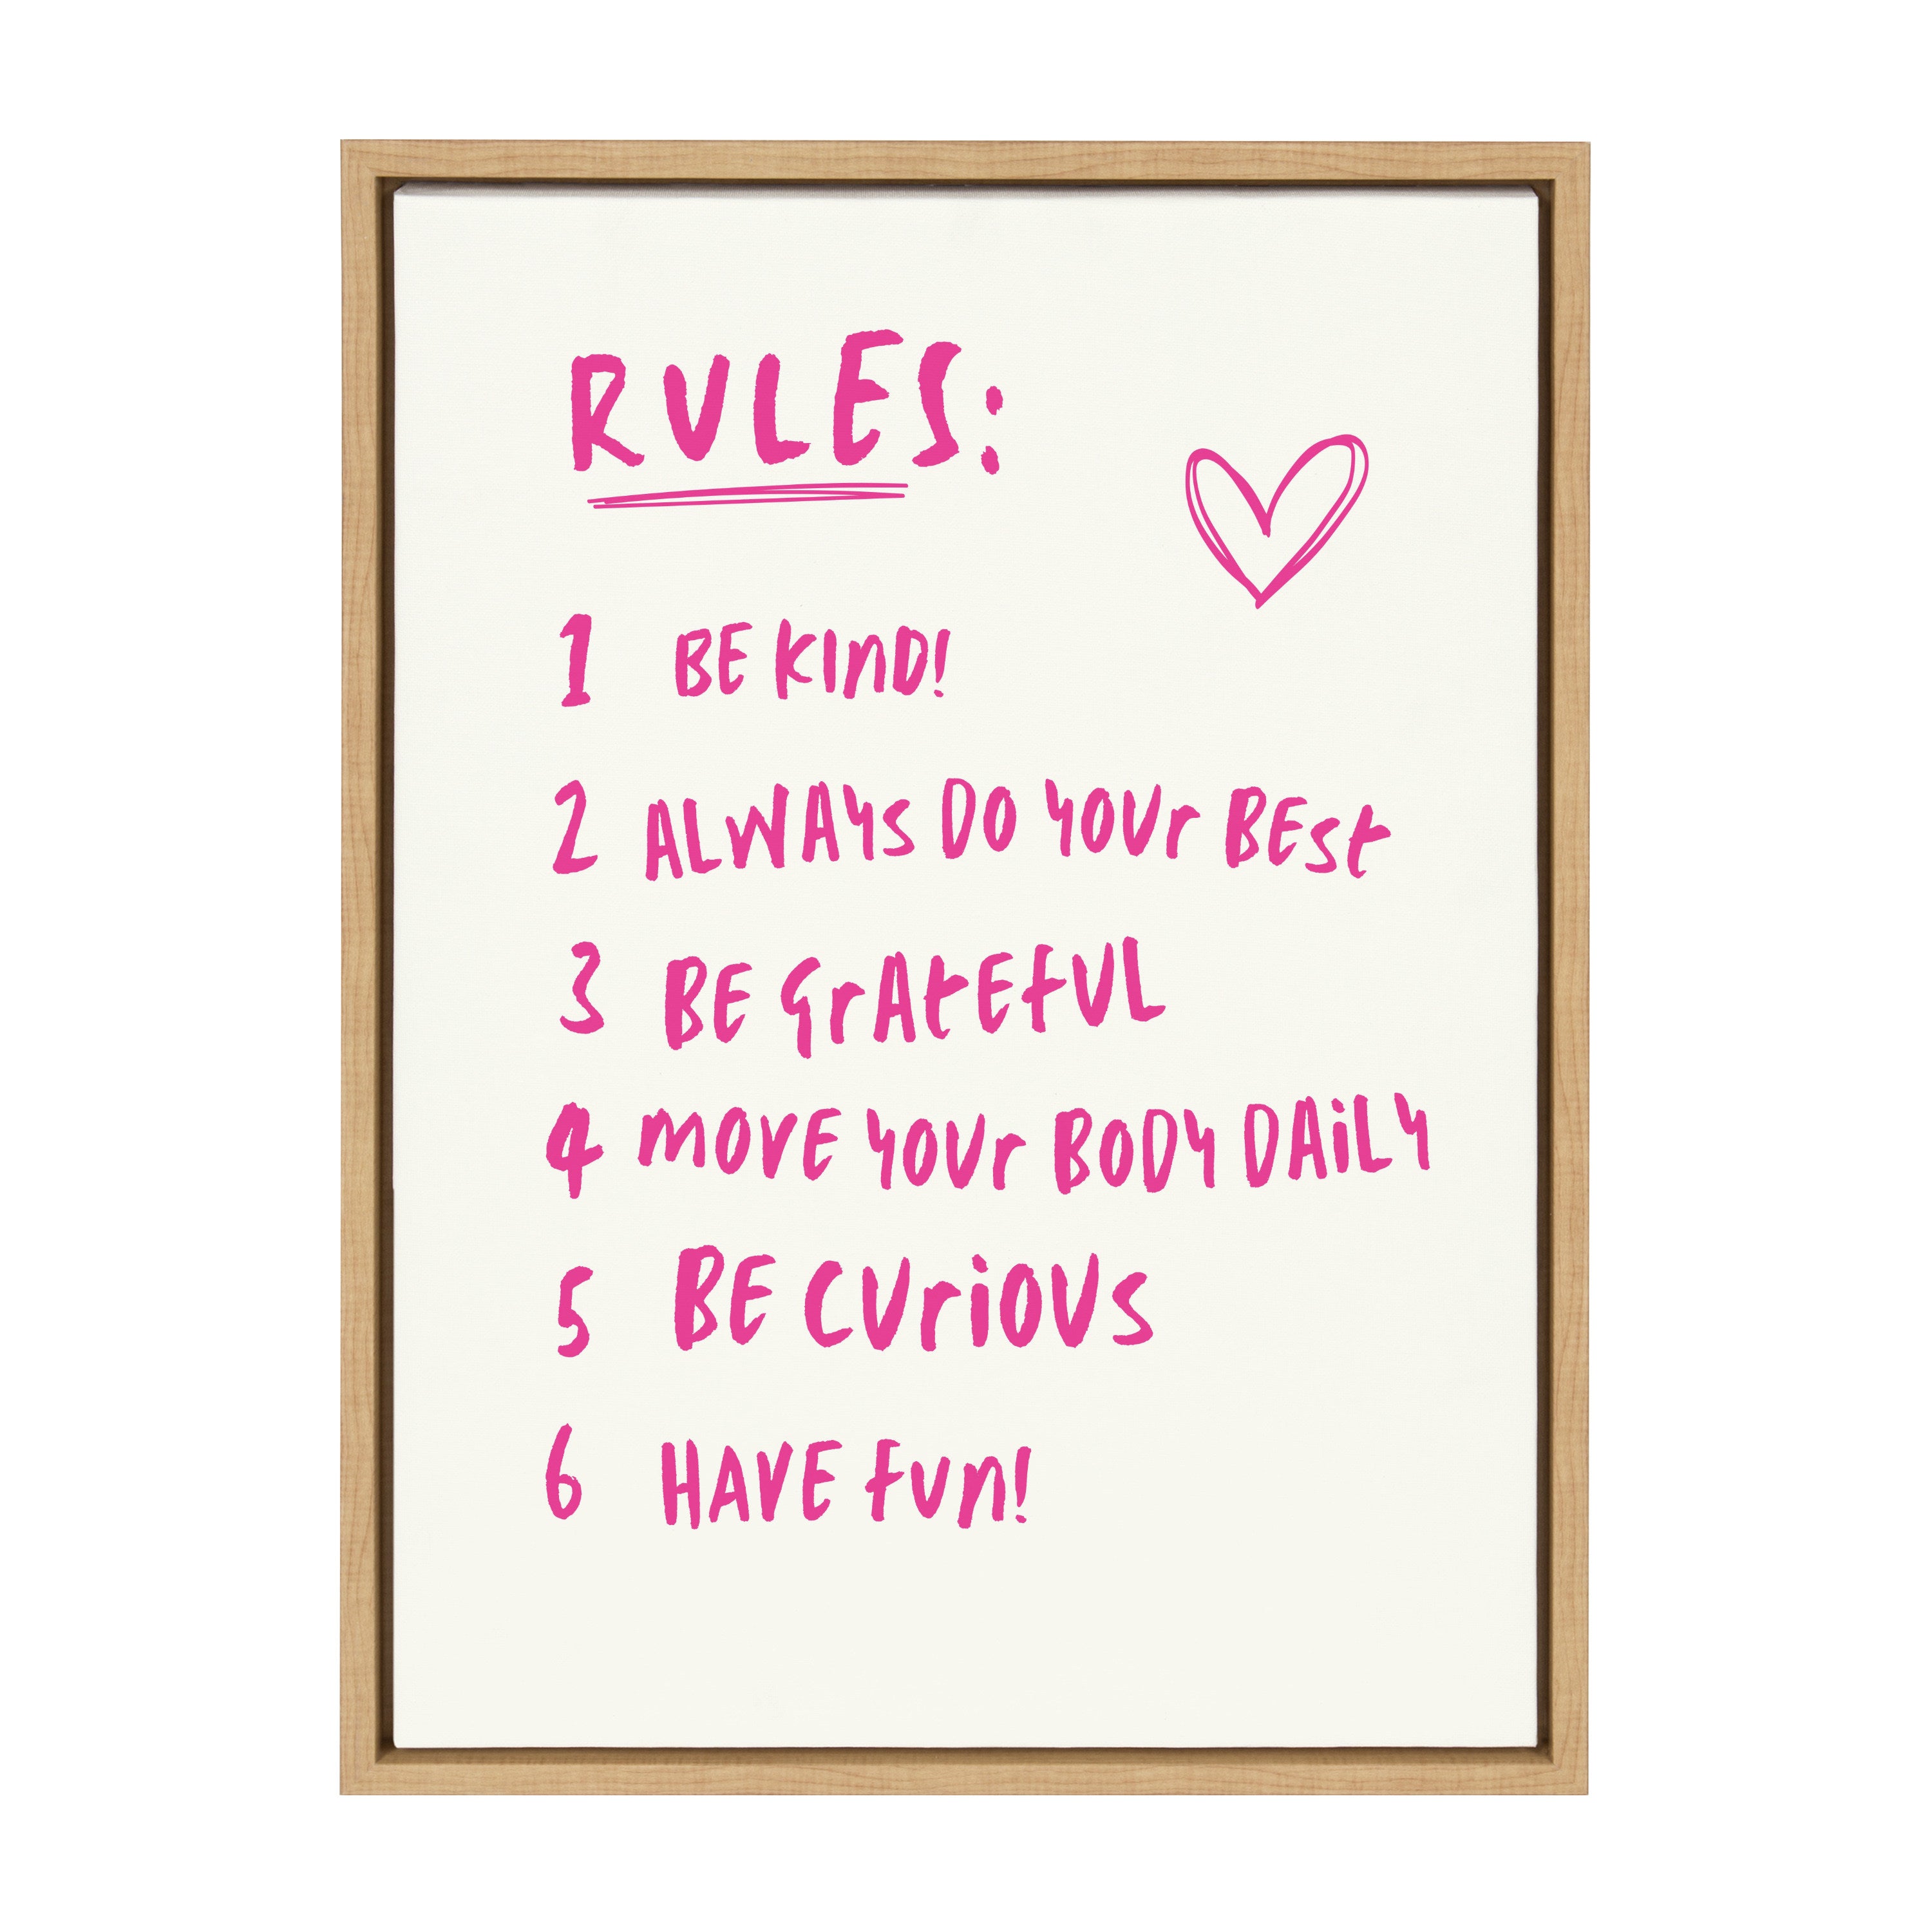 RULES:
1 BE KIND!
2 ALWAYS DO YOUR BEST
3 BE GRATEFUL
4 MOVE YOUR BODY DAILY
5 BE CURIOUS
6 HAVE FUN!